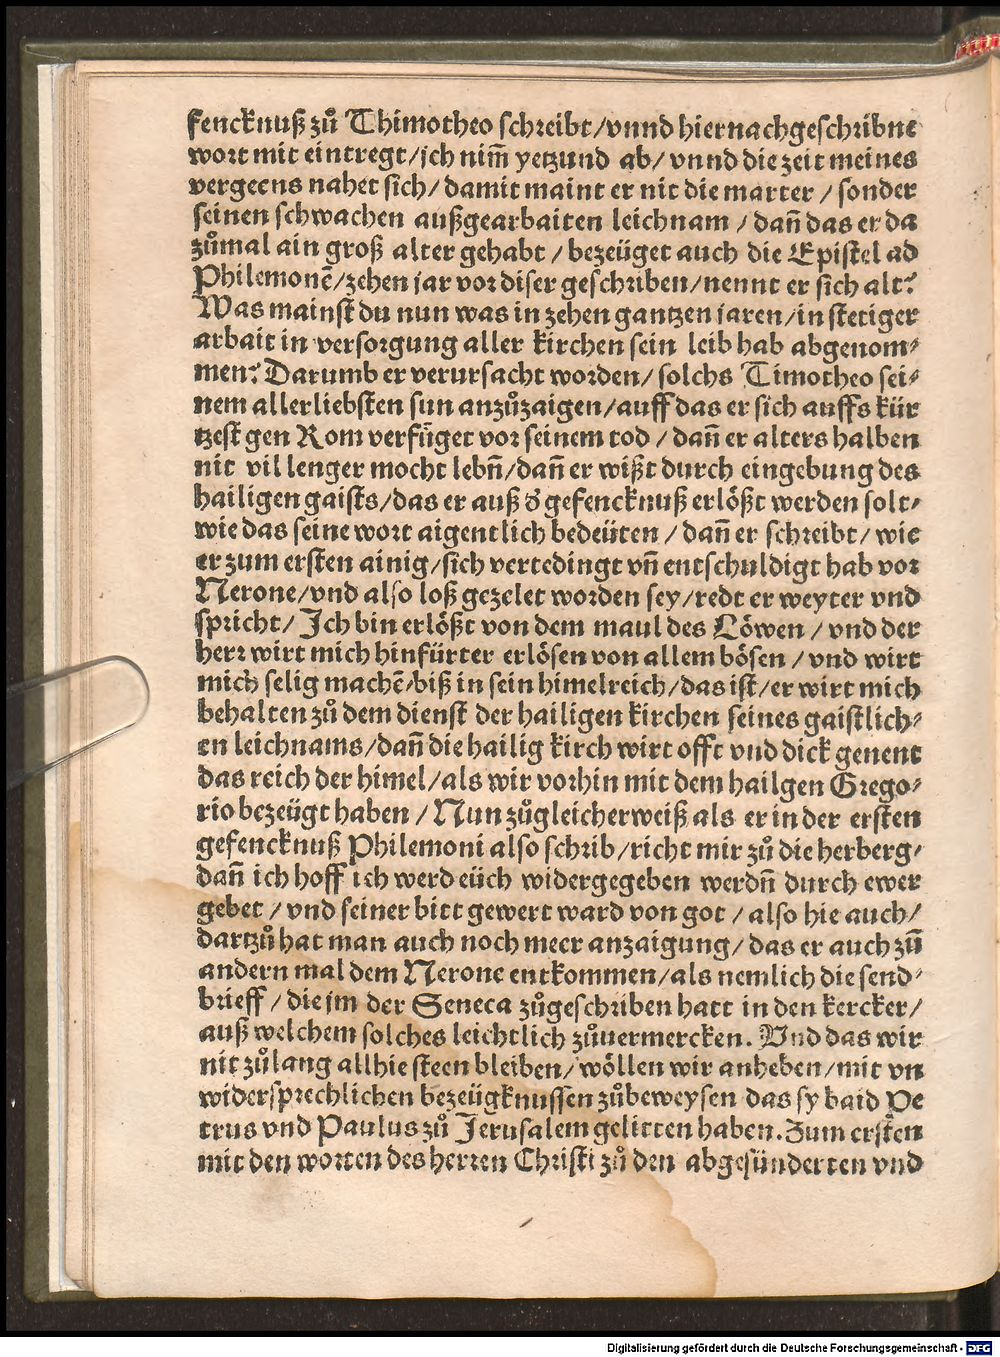 fencknuß zů Thimotheo schreibt/vnnd hiernachgeschribne
wort mit eintregt/jch nim̄ yetzund ab/ vnnd die zeit meines
vergeens nahet sich/ damit maint er nit die marter / sonder
seinen schwachen außgearbaiten leichnam / dañ das er da
zůmal ain groß alter gehabt / bezeüget auch die Epistel ad
Philemonē/zehen jar vor diser geschriben/nennt er sich alt?
Was mainst du nun was in zehen gantzen jaren/in stetiger
arbait in versorgung aller kirchen sein leib hab abgenom⸗
men? Darumb er verursacht worden/ solchs Timotheo sei⸗
nem allerliebsten sun anzůzaigen/auff das er sich auffs kür
tzest gen Rom verfüget vor seinem tod / dañ er alters halben
nit vil lenger mocht lebñ/dañ er wißt durch eingebung des
hailigen gaists/das er auß đ gefencknuß erlößt werden solt⸗
wie das seine wort aigentlich bedeüten / dañ er schreibt/ wie
er zum ersten ainig/sich vertedingt vñ entschuldigt hab vor
Nerone/vnd also loß gezelet worden sey/redt er weyter vnd
spricht/ Ich bin erlößt von dem maul des Löwen / vnd der
herr wirt mich hinfürter erlösen von allem bösen / vnd wirt
mich selig machē/biß in sein himelreich/das ist/er wirt mich
behalten zů dem dienst der hailigen kirchen seines gaistlich⸗
en leichnams/dañ die hailig kirch wirt offt vnd dick genent
das reich der himel/als wir vorhin mit dem hailgen Grego⸗
rio bezeügt haben / Nun zůgleicherweiß als er in der ersten
gefencknuß Philemoni also schrib/richt mir zů die herberg⸗
dañ ich hoff ich werd eüch widergegeben werdñ durch ewer
gebet / vnd seiner bitt gewert ward von got / also hie auch/
dartzů hat man auch noch meer anzaigung/ das er auch zū
andern mal dem Nerone entkommen/als nemlich die send⸗
brieff / die jm der Seneca zůgeschriben hatt in den kercker/
auß welchem solches leichtlich zůuermercken. Vnd das wir
nit zůlang allhie steen bleiben/wöllen wir anheben/mit vn
widersprechlichen bezeügknussen zůbeweysen das sy baid Pe
trus vnd Paulus zů Jerusalem gelitten haben. Zum ersten
mit den worten des herren Christi zů den abgesünderten vnd
Digitalisierung gefördert durch die Deutsche Forschungsgemeinschaft - DFG